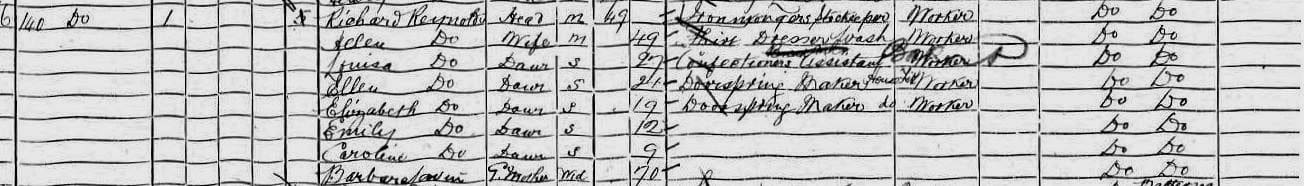 6 140 Do 1 Richard Reynolds Head M 49 Ironmongers Storekeeper Worker Do Do
Ellen Do Wife M 49 Shirt Dresser Wash Worker Do Do
Louisa Do Daur S 27 Confectioners Assistant Worker Do Do
Ellen Do Daur S 21 Doorspring Maker Worker Do Do
Elizabeth Do Daur S 19 Doorspring Maker do Worker Do Do
Emily Do Daur S 12 Do Do
Caroline Do Daur S 9 Do Do
Barbara Mother 70 Do Do